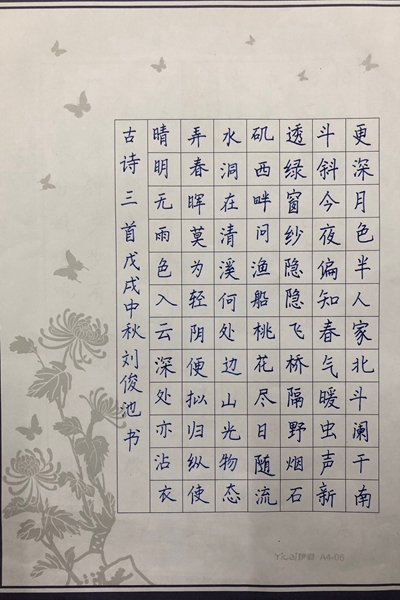 更深月色半人家北斗阑干南
斗斜今夜偏知春气暖虫声新
透绿窗纱隐隐飞桥隔野烟石
矶西畔问渔船桃花尽日随流
水洞在清溪何处边山光物态
弄春晖莫为轻阴便拟归纵使
晴明无雨色入云深处亦沾衣
古诗三首戊戌中秋刘俊池书
A4-08